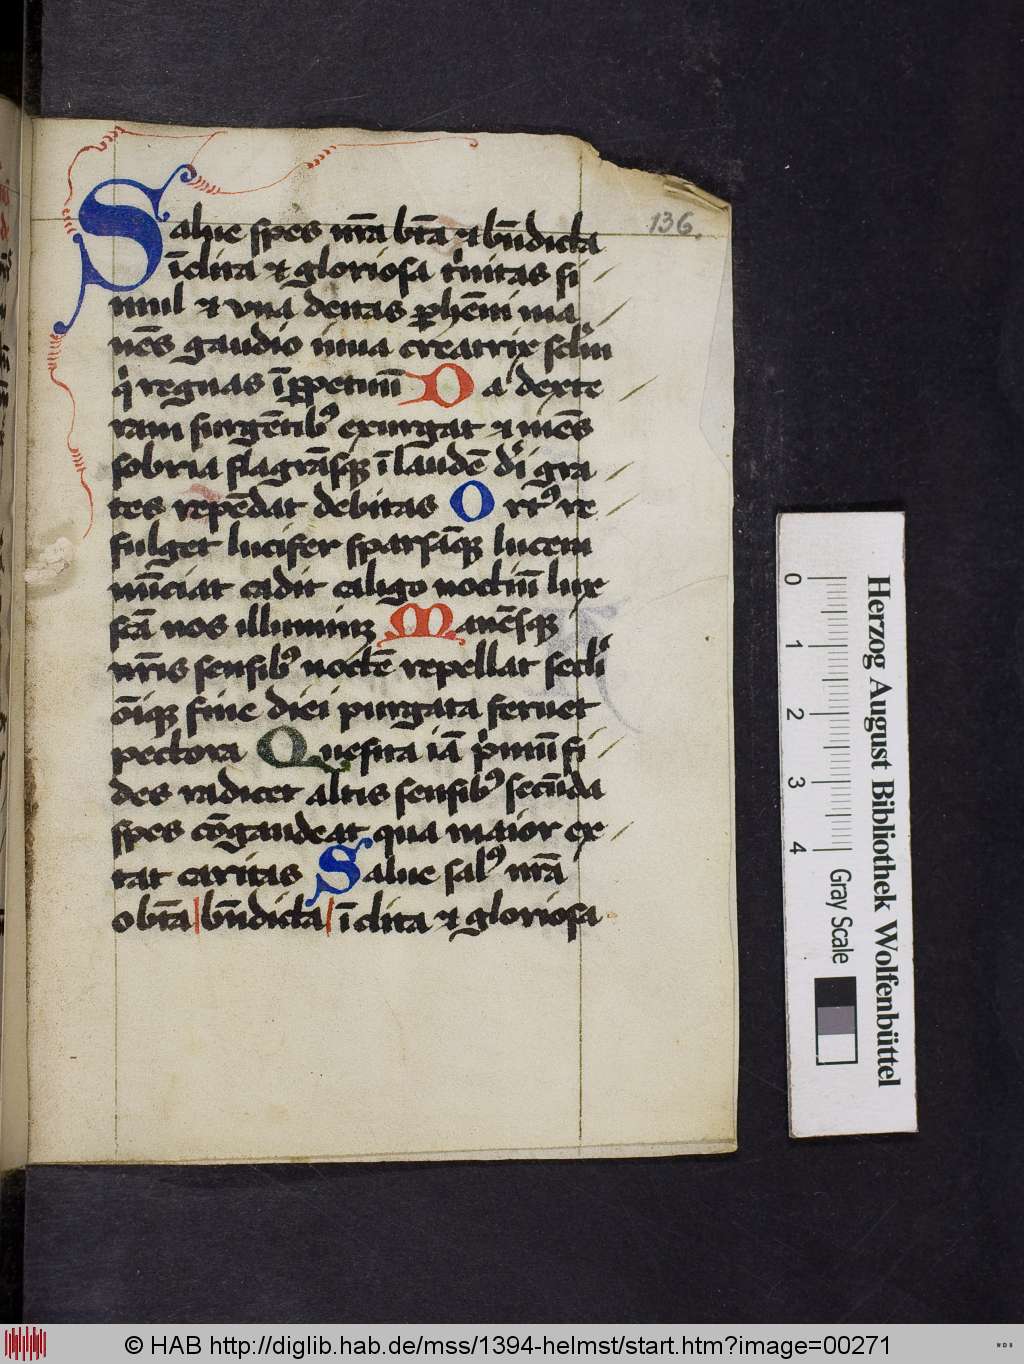 136.
Salue spes nr̄a btā ⁊ bn̄dicta
īclita ⁊ gloriosa tͥnitas si
mul ⁊ vna deitas ꝑhēni ma
nēs gaudio
creatrix
qͥ regnas īꝑpetuū Da dexte
ram surgētibꝰ exurgat ⁊ mēs
sobria flagrāsqꝫ ī laudē dī gra
tes repēdat debitas Ortꝰ re
fulget lucifer sparsāqꝫ lucem
nūciat cadit caligo noctiū lux
scā nos illuminꝫ Manēsqꝫ
nr̄is sensibꝰ noctē repellat secli
ōīqꝫ fine diei purgata seruet
pectora Quesita iā pͥmū fi
des radicet altis sensibꝰ secūda
spes cōgaudeat qua maior ex
tat caritas Salue salꝰ nr̄a
o btā bn̄dicta īclita ⁊ gloriosa
Herzog August Bibliothek Wolfenbüttel
0 1 2 3 4 Gray Scale
© HAB http://diglib.hab.de/mss/1394-helmst/start.htm?image=00271